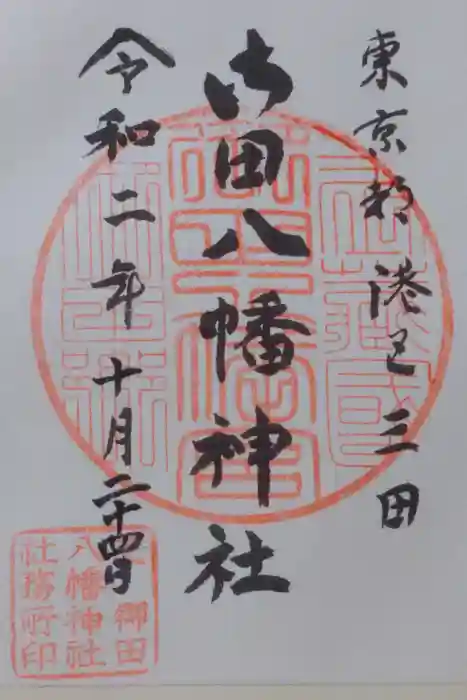 東京都港区三田
御田八幡神社
令和二年十月二十四日
御田
八幡神社
社務所印